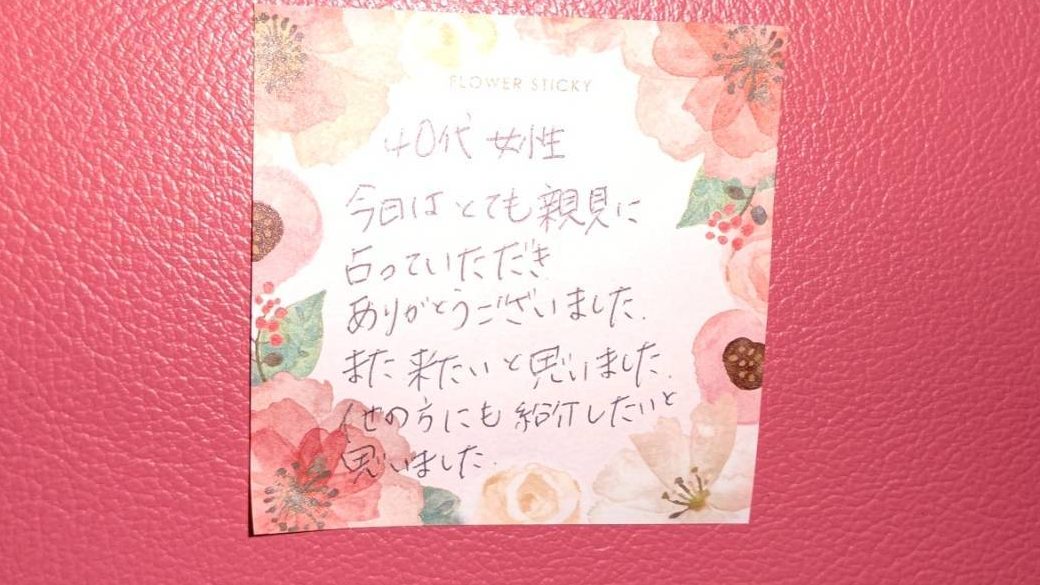 FLOWER STICKY
40代 女性
今日はとても親見に
占っていただき
ありがとうございました.
また来たいと思いました.
他の方にも紹介したいと
思いました.